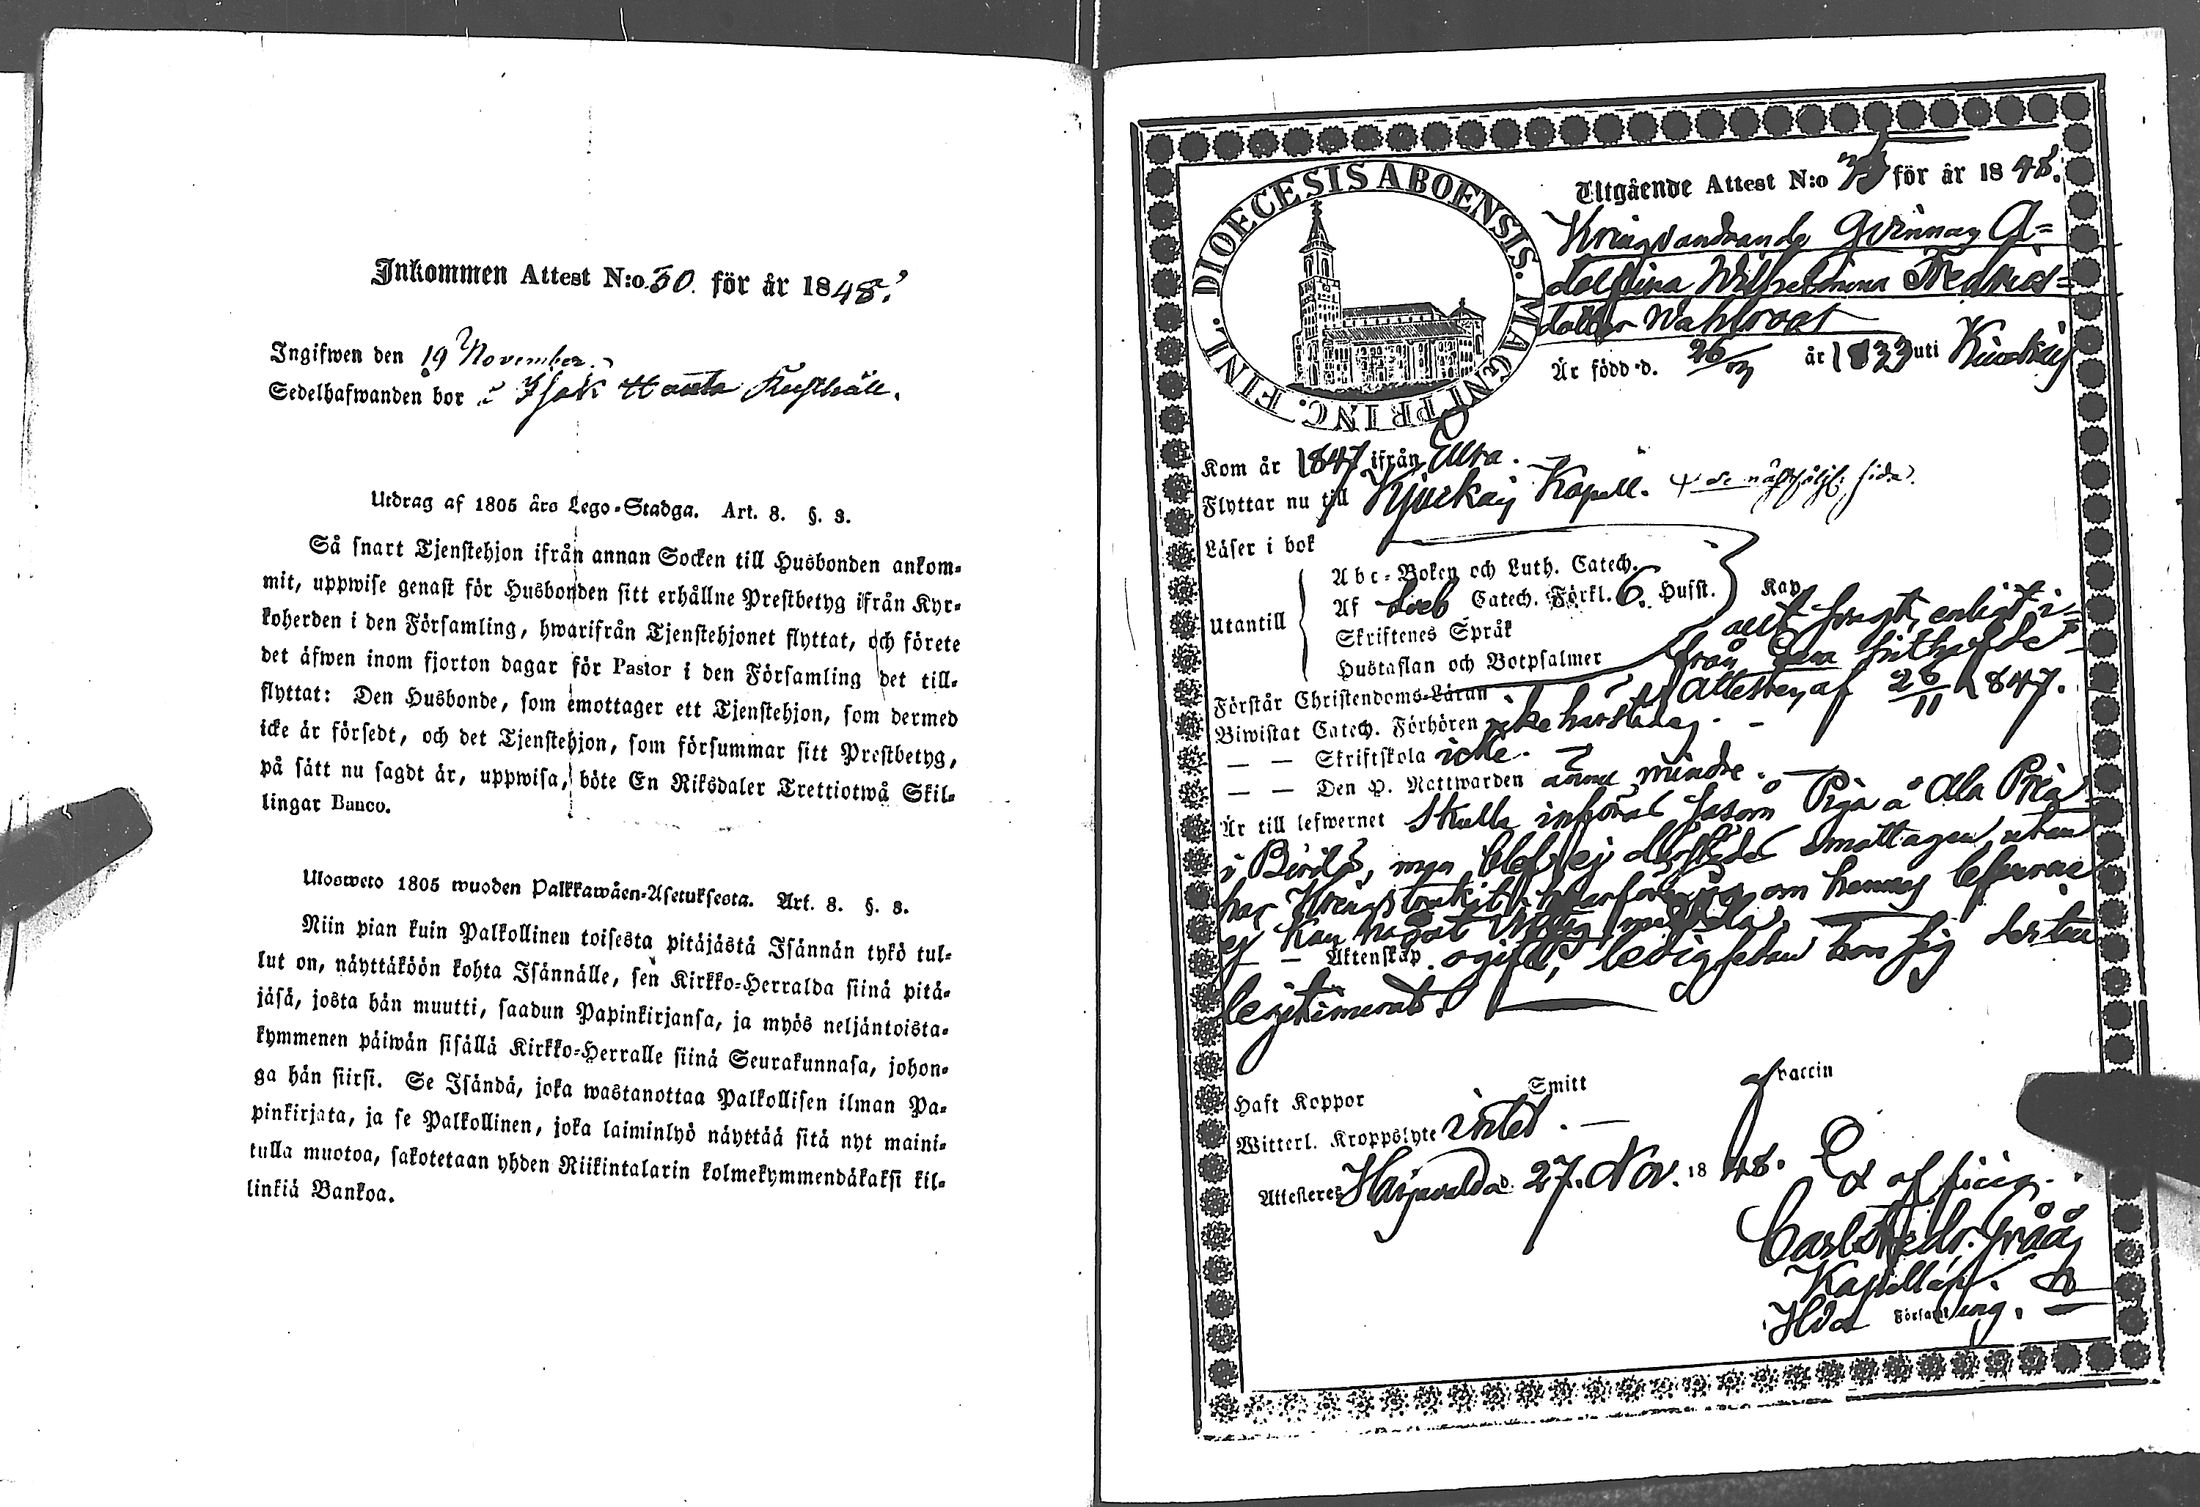 Inkommen Attest N:o 50. för år 1848.
Ingifwen den 19 November.
Sedelhafwanden bor i Isak
Utdrag af 1805 års Lego-Stadga. Art. 8. §. 3.
Så snart Tjenstehjon ifrån annan Socken till Husbonden ankom-
mit, uppwise genast för Husbonden sitt erhållne Prestbetyg ifrån Kyr-
koherden i den Församling, hwarifrån Tjenstehjonet flyttat, och förete
det äfwen inom fjorton dagar för Pastor i den Församling det till-
flyttat: Den Husbonde, som emottager ett Tjenstehjon, som dermed
icke är försedt, och det Tjenstehjon, som försummar sitt Prestbetyg,
på sätt nu sagdt är, uppwisa, böte En Riksdaler Trettiotwå Skil-
lingar Banco.
Ulosweto 1805 wuoden Palkkawäen-Asetuksesta. Art. 8. §. 3.
Niin pian kuin Palkollinen toisesta pitäjästä Isännän tykö tul-
lut on, näyttäköön kohta Isännälle, sen Kirkko-Herralda siinä pitä-
jäsä, josta hän muutti, saadun Papinkirjansa, ja myös neljäntoista-
kymmenen päiwän sisällä Kirkko-Herralle siinä Seurakunnasa, johon-
ga hän siirsi. Se Isändä, joka wastanottaa Palkollisen ilman Pa-
pinkirjata, ja se Palkollinen, joka laiminlyö näyttää sitä nyt maini-
tulla muotoa, sakotetaan yhden Riikintalarin kolmekymmendäkaksi kil-
linkiä Bankoa.
DIOECESIS ABOENSIS. MAGNI PRINC. FINL.
Utgående Attest N:o för år 1848.
Kringvandrande Qvinnan A=
dolfina Wilhelmina Fredrics=
dotter Wahlroos
Är född d. 26/ år 1833 uti
Kom år 1847 ifrån Ulfva.
Flyttar nu till Kjulkais Kapell. se nästföljs. sida.
Läser i bok
Utantill
Abc-Boken och Luth. Catech.
Af Catech. Förkl. 6. Hufst. Kap
Skriftenes Språk
Hustaflan och Botpsalmer
allt svagt, enligt i=
från hithafde
Attesten af 26/11 1847.
Förstår Christendoms-Läran
Biwistat Catech. Förhören icke härstädes.
— — Skriftskola icke.
— — Den H. Nattwarden ännu mindre.
Är till lefwernet Skulle införas såsom Piga å Ala
i Birila, men blef ej derstädes emottagen, utan
har kringstrukit, hvarföre jag om hennes lefverne
ej kan något meddela.
— — Äktenskap ogift, ledigheten hon sig
legitimerat.
Haft Koppor Smitt Vaccin
Witterl. Kroppslyte intet.
Attesteres Harjavalda d. 27. Nov. 1848. Ex officio.
Kapellan.
Hda Församling.